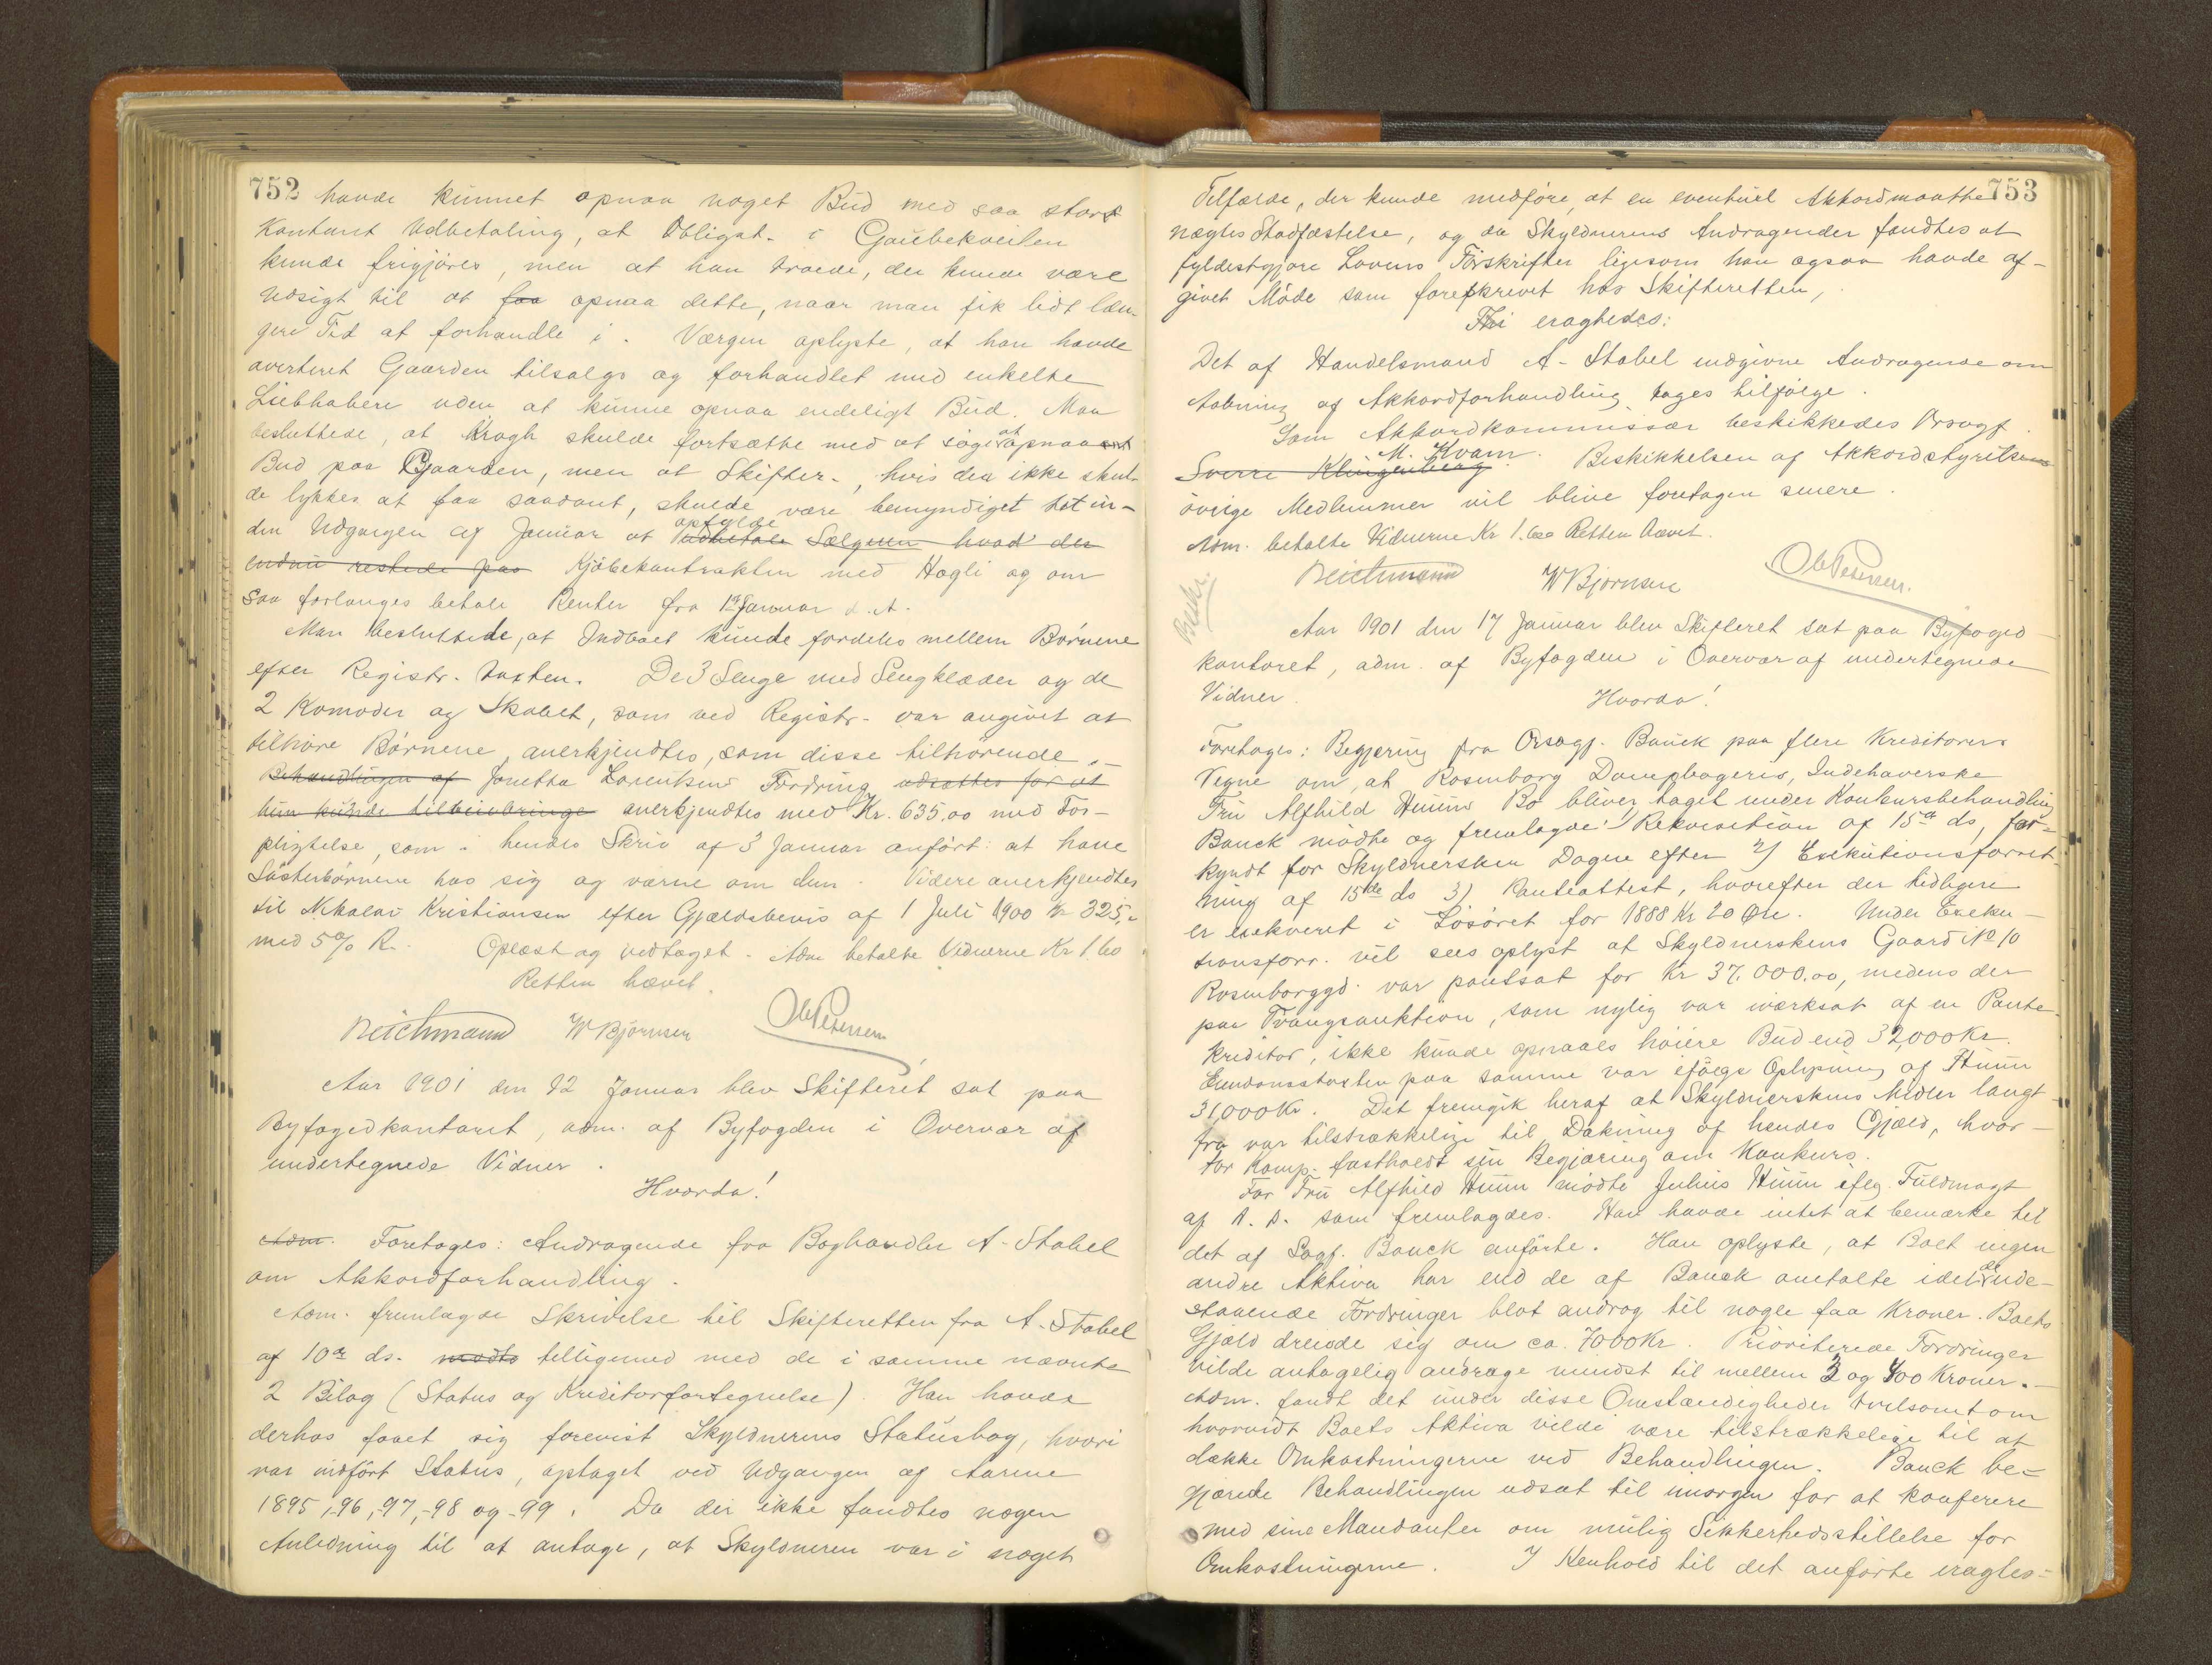 752
havde kunnet opnaa noget Bud med saa stort
Kontant Udbetaling, at Obligat. i Gaubekveilen
kunde frigjøres, men at han troede, der kunde være
Udsigt til at faa opnaa dette, naar man fik lidt læn-
gere Tid at forhandle i. Værgen oplyste, at han havde
averteret Gaarden tilsalgs og forhandlet med enkelte
Liebhabere uden at kunne opnaa endeligt Bud. Man
besluttede, at Kragh skulde fortsætte med at søge at opnaa
Bud paa Gaarden, men at Skifter-, hvis den ikke skul-
de lykkes at faa saadant, skulde være bemyndiget tet in-
den Udgangen af Januar at opfylde udbetale Sælgeren hvad der
endnu restede paa Kjøbekontrakten med Hogli og om
saa forlanges betale Renter fra 1ste Januar d. A.
Man besluttede, at Indboet kunde fordeles mellem Børnene
efter Registr. taxten. De 3 Senge med Sengklæder og de
2 Komoder og Skabet, som ved Registr- var angivet at
tilhøre Børnene, anerkjendtes, som disse tilhørende.-
Behandlingen af Jonetta Lorentsens Fordring udsattes for at
hun kunde tilveiebringe anerkjendtes med Kr. 635.00 med For-
pligtelse, som i hendes Skriv af 3 Januar anført: at have
Søsterbørnene hos sig og værne om dem. Videre anerkjendtes
til Nikolai Kristiansen efter Gjældsbevis af 1 Juli 1900 Kr 325,-
med 5% R. Oplæst og vedtaget. Adm betalte Vidnerne Kr 1.60
Retten hævet.
Reichmann W Bjørnsen Ole Petersen
Aar 1901 den 12 Januar blev Skifteret sat paa
Byfogedkontoret, adm. af Byfogden i Overvær af
undertegnede Vidner.
Hvorda!
Adm. Foretoges: Andragende fra Boghandler A. Stabel
om Akkordforhandling.
Adm. fremlagde Skrivelse til Skifteretten fra A. Stabel
af 10de ds. modto telligemed med de i samme nævnte
2 Bilag (Status og Kreditorfortegnelse) Han havde
derhos faaet sig forevist Skyldnerens Statusbog, hvori
var indført Status, optaget ved Udgangen af Aarene
1895, -96, -97, -98 og -99. Da der ikke fandtes nogen
Anledning til at antage, at Skyldneren var i noget
753
Tilfælde, der kunde medføre, at en eventuel Akkord maatte
nægtes Stadfæstelse, og da Skyldnerens Andragender fandtes at
fyldestgjøre Lovens Forskrifter ligesom han ogsaa havde af-
givet Møde som foreskrevet hos Skifteretten,
Thi eragtedes:
Det af Handelsmand A. Stabel indgivne Andragende om
Aabning af Akkordforhandling tages tilfølge.
Som Akkordkommissær beskikkedes Orsagf.
Sverre Klingenberg M. Kvam. Beskikkelsen af Akkordstyrets
øvrige Medlemmer vil blive foretagen senere.
Adm. betalte Vidnerne Kr 1.60 Retten hævet.
Reichmann W Bjørnsen Ole Petersen.
Bekr.
Aar 1901 den 17 Januar blev Skifteret sat paa Byfoged-
kontoret, adm. af Byfogden i Overvær af undertegnede
Vidner. Hvorda!
Foretoges: Begjæring fra Orsagf. Bauck paa flere Kreditorers
Vegne om, at Rosenborg Dampbageris, Indehaverske
Fru Alfhild Huuns Bo bliver taget under Konkursbehandling
Bauck mødte og fremlagde: 1) Rekvisition af 15de ds, for-
kyndt for Skyldnersken Dagen efter 2) Exekutionsforret-
ning af 15de ds 3) Panteattest, hvorefter der tidligere
er exekveret i Løsøret for 1888 Kr 20 Øre. Under Exeku-
tionsforr. vil sees oplyst at Skyldnerskens Gaard No 10
Rosenborggd. var pantsat for Kr 37.000.00, medens der
paa Tvangsauktion, som nylig var iværksat af en Pante-
kreditor, ikke kunde opnaaes høiere Bud end 32,000 Kr.
Eiendomstaxten paa samme var ifølge Oplysning af Huun
31,000 Kr. Det fremgik heraf at Skyldnerskens Midler langt
fra var tilstrækkelige til Dækning af hendes Gjæld, hvor-
for Komp. fastholdt sin Begjæring om Konkurs.
For Fru Alfhild Huun mødte Julius Huun iflg. Fuldmagt
af D. D. som fremlagdes. Han havde intet at bemærke til
det af Sagf. Bauck anførte. Han oplyste, at Boet ingen
andre Aktiva har end de af Bauck omtalte idet de ude-
staaende Fordringer blot androg til nogle faa Kroner. Boets
Gjæld dreiede sig om ca. 7000 Kr. Prioriterede Fordringer
vilde antagelig andrage mindst til mellem 3 og 400 Kroner.-
Adm. fandt det under disse Omstændigheder tvilsomt om
hvorvidt Boets Aktiva vilde være tilstrækkelige til at
dække Omkostningerne ved Behandlingen. Bauck be-
gjærede Behandlingen udsat til imorgen for at konferere
med sine Mandanter om mulig Sikkerhedsstillelse for
Omkostningerne. I Henhold til det anførte eragtes-